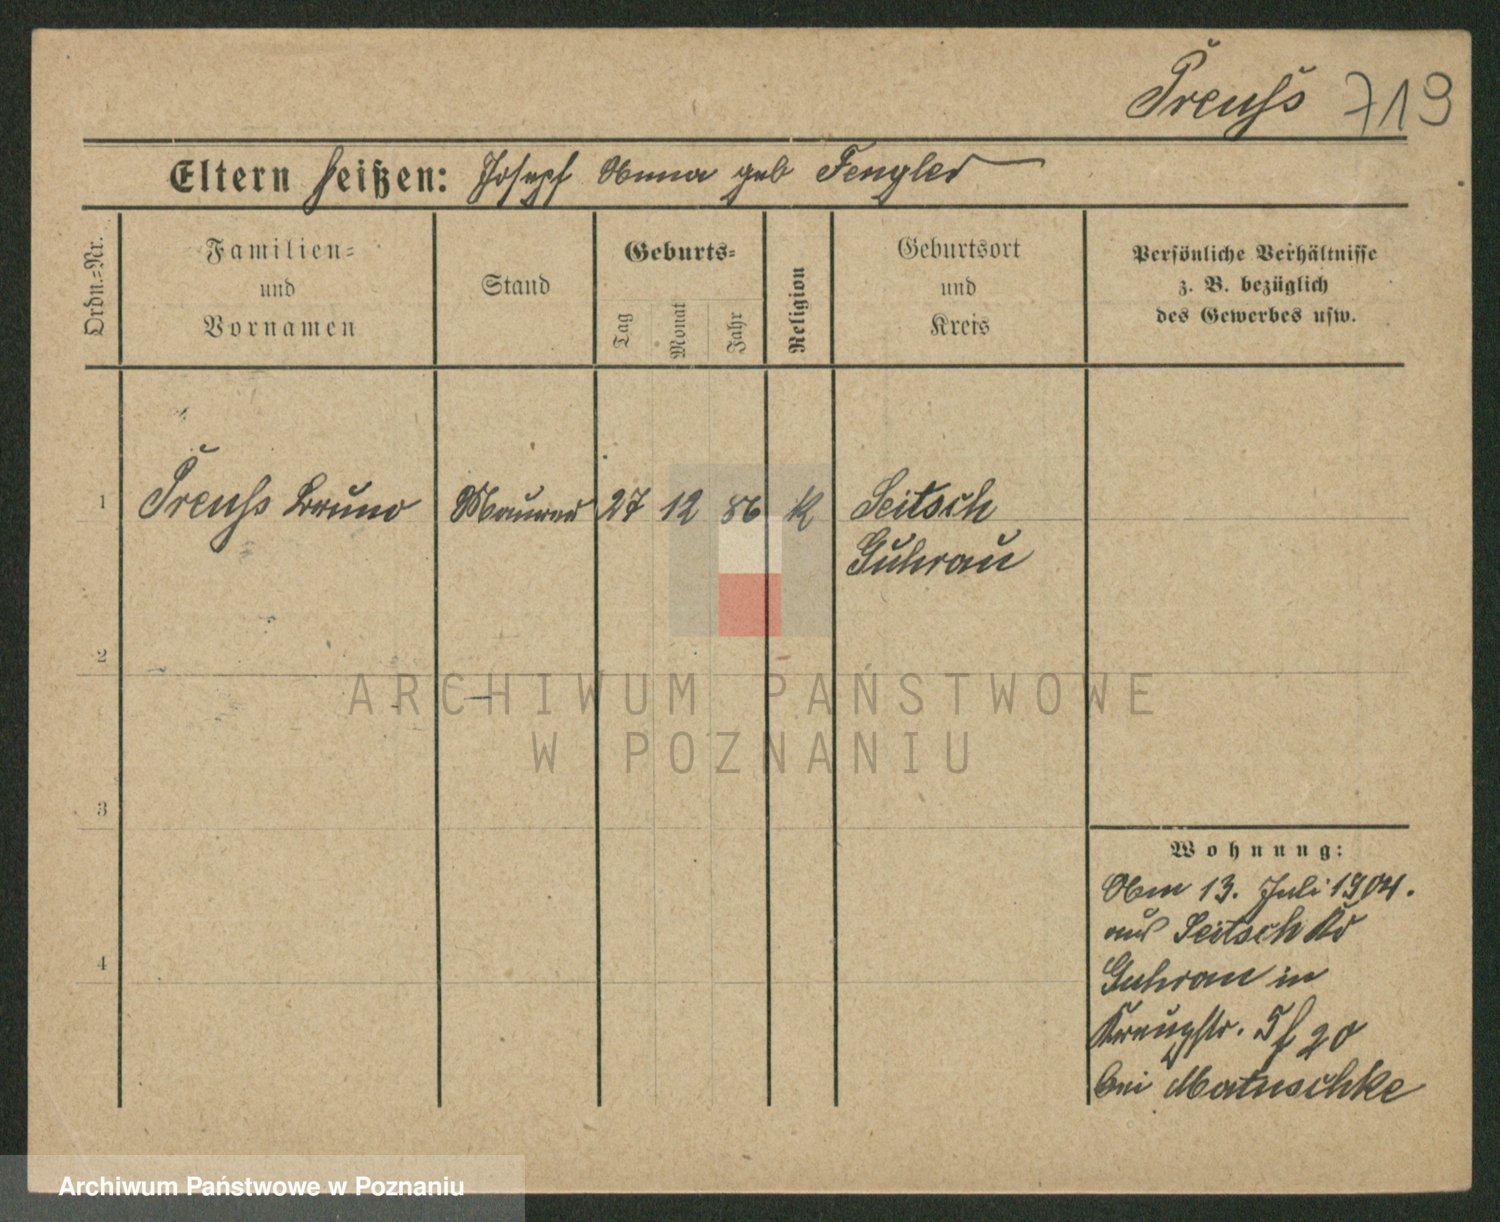 Preuß 719
Eltern heißen: Josepf Anna geb Fengler
Ordn.=Nr.
Familien=
und
Vornamen
Stand
Geburts=
Tag
Monat
Jahr
Religion
Geburtsort
und
Kreis
Persönliche Verhältnisse
z. B. bezüglich
des Gewerbes usw.
1 Preuß Bruno Maurer 27 12 86 K Seitsch
Guhrau
2
3
4
ARCHIWUM PAŃSTWOWE
W POZNANIU
Wohnung:
Am 13. Juli 1904.
aus Seitsch Kr
Guhrau in
Kreuzstr. 20
bei Matuschke
Archiwum Państwowe w Poznaniu